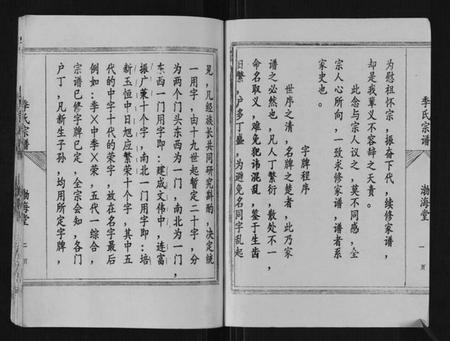 季氏宗谱
渤海堂
一页
为慰祖怀宗，振奋下代，续修家谱，
却是我辈义不容辞之天责。
此念与宗人议之，莫不同感，全
宗人心所向，一致求修家谱，谱者系
家史也。
字牌程序
世序之清，名牌之楚者，此乃家
谱之必然也，凡人丁繁衍，散处不一，
命名取义，难免犯讳混乱，鉴于生齿
日繁，户多丁盛，为避免名同字乱起
见，几经族长共同研究斟酌，决定统
一用字，由十九世起暂定二十字，分
为两个门头东西为一门，南北为一门，
东西一门用字即：建成文伟中，连富
振广策十个字，南北一门用字即：培
新玉恒中日旭应繁荣十个字，其中五
代的中字十代的荣字，放在名字最后
例如：季×中季×荣，五代一综合，
宗谱已修字牌已定，全宗会知，各门
户丁，凡新生子孙，均用所定字牌，
季氏宗谱
渤海堂
二页